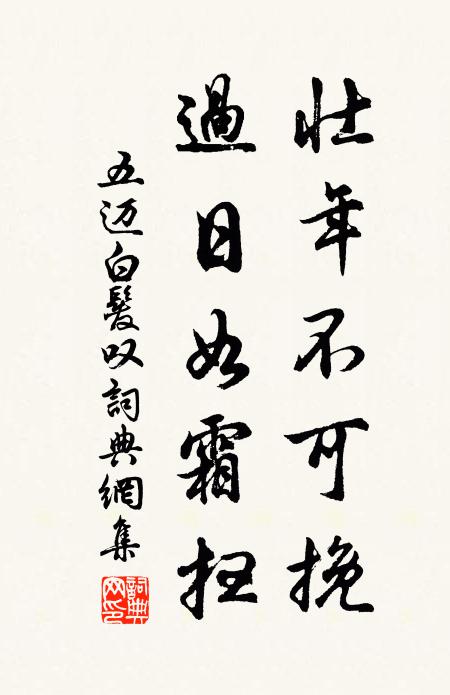 壮年不可挽
過日如霜
五迈白髮叹詞典網集
詞典
网印